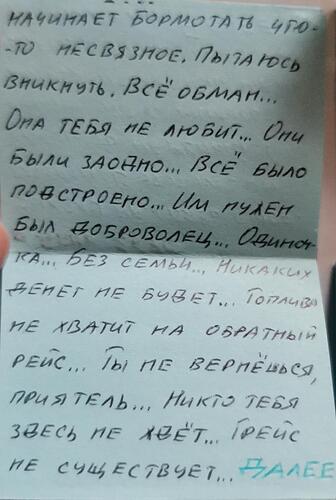 начинает бормотать что-
-то несвязное. Пытаюсь
вникнуть. Всё обман...
Она тебя не любит... Они
были заодно... Всё было
подстроено... Им нужен
был доброволец... Одиноч-
ка... Без семьи... Никаких
денег не будет... Топлива
не хватит на обратный
рейс... Ты не вернёшься,
приятель... Никто тебя
здесь не ждёт... Грейс
не существует... Далее